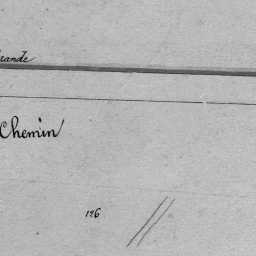 rande
Chemin
126